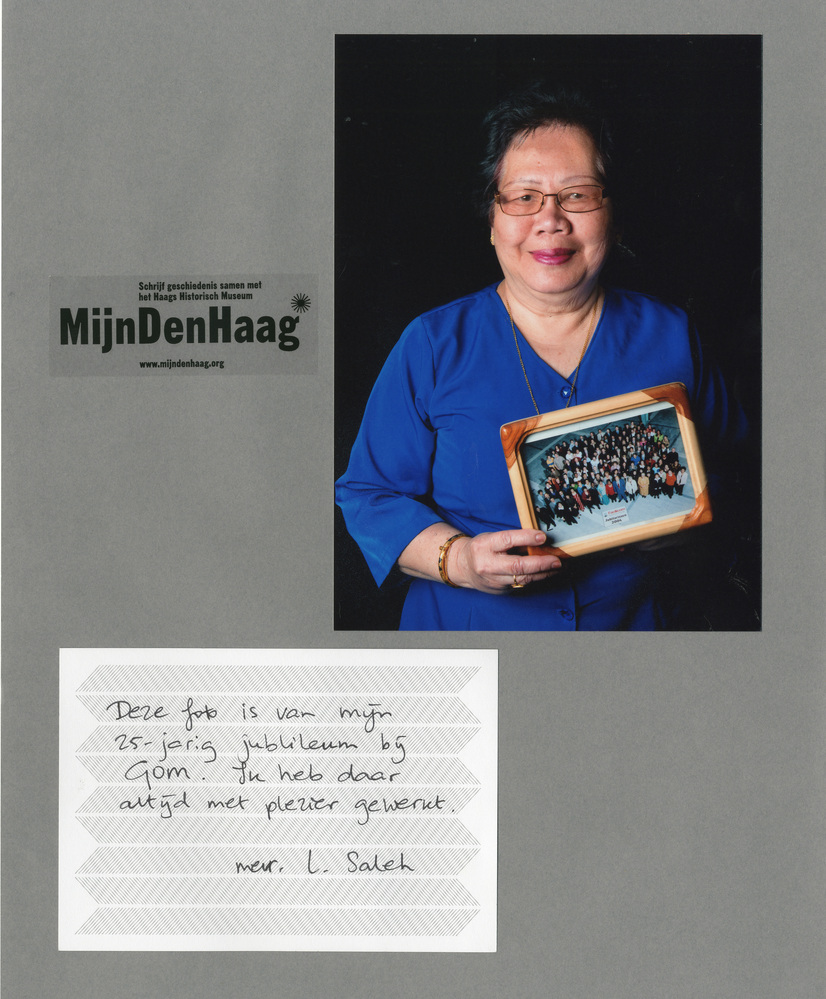 Schrijf geschiedenis samen met
het Haags Historisch Museum
MijnDenHaag
www.mijndenhaag.org
Deze foto is van mijn
25-jarig jublileum bij
Gom. Ik heb daar
altijd met plezier gewerkt.
mevr. L. Saleh